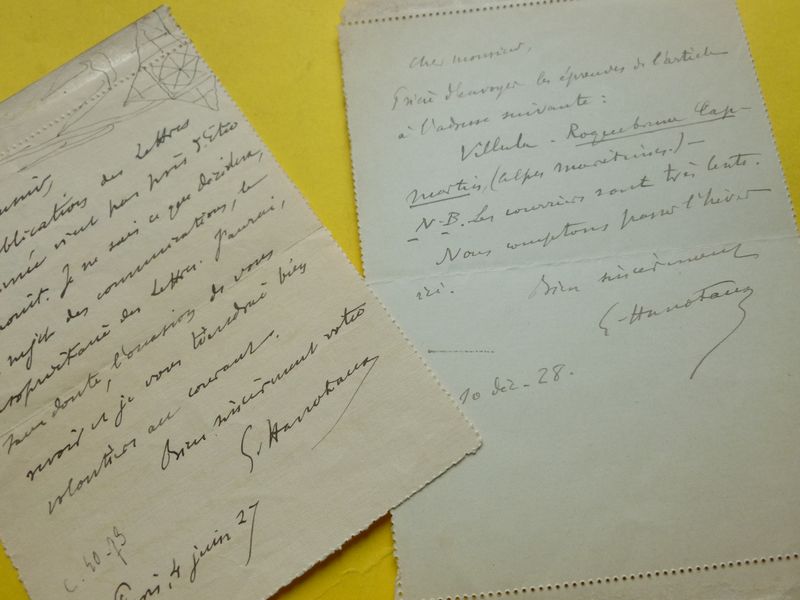 blications des Lettres
année n'est pas près d'être
Je ne sais ce que décidera,
sujet des communications, le
propriétaire des Lettres. J'aurai,
sans doute, l'occasion de vous
revoir et je vous tiendrai bien
volontiers au courant.
Bien sincèrement votre
G. Hanotaux
C. 50-75
Paris, 4 juin 27
Cher monsieur,
Prière d'envoyer les épreuves de l'article
à l'adresse suivante :
Villula - Roquebrune Cap-
Martin, (Alpes maritimes.) -
N-B. Les courriers sont très lents.
Nous comptons passer l'hiver
ici. Bien sincèrement
G. Hanotaux
10 déc. - 28.